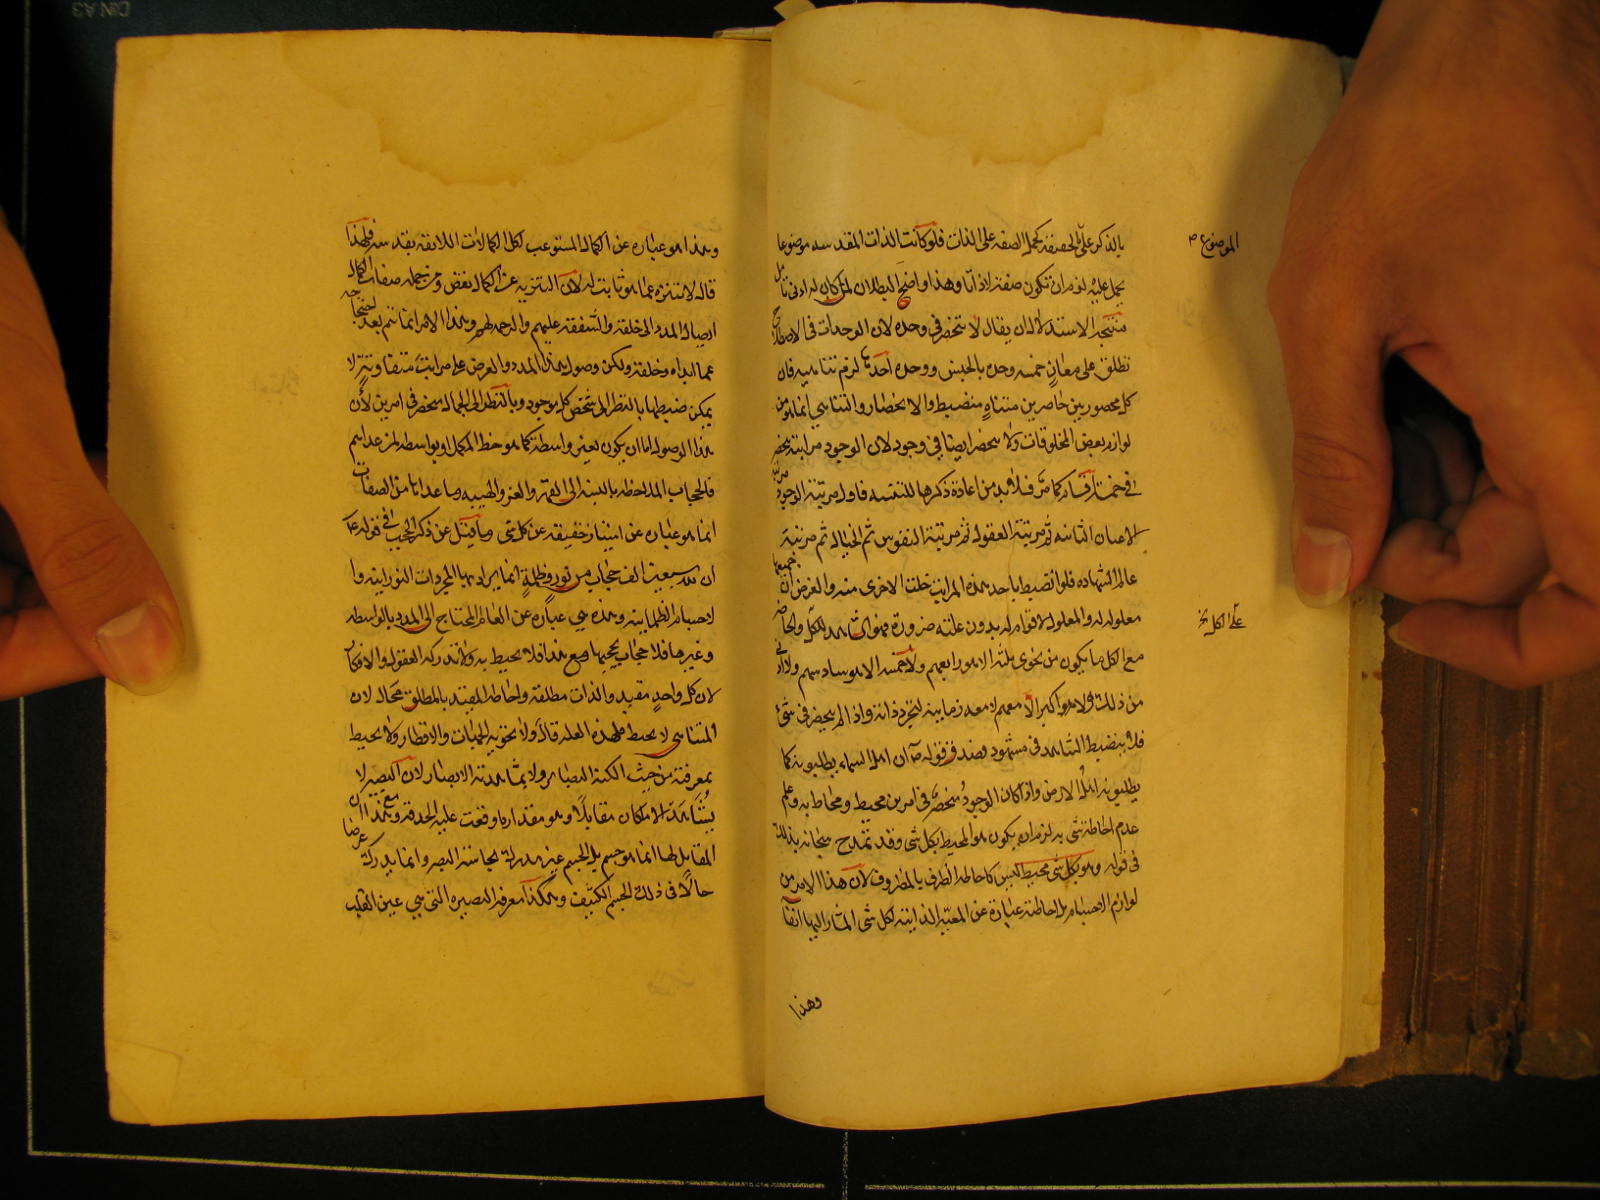 بالذكر على الحقيقة كحمل الصفة على الذات فلو كانت الذات المقدسه موضوعا
الموضوع
يحمل عليه لزم ان تكون صفة لا ذاتا وهذا واضح البطلان لمن كان له ادنى تامل
الاستدلال ان يقال لا تنحصر في وحده لان الوحدات في الاصطلاح
تطلق على معان خمسه وحده بالجنس ووحده لزم تناهيه فان
كل محصور بين حاصرين متناه منضبط والانحصار والتناهي انما هو من
لوازم بعض المخلوقات ولا ينحصر ايضا في وجود لان الوجود مراتبه تنحصر
في كما مر فلا بد من اعادة ذكرها للتنبيه فاول مرتبة الوجود مرتبة
الاعيان الثابته ثم مرتبة العقول ثم مرتبة النفوس ثم الخيال ثم مرتبة
عالم الشهاده فلو انضبط باحد هذه المراتب خلت الاخرى منه والغرض ان جميعها
معلولة له والمعلول لا قوام له بدون علته ضرورة فهو الشاهد للكل والحاضر
على الكل
مع الكل ما يكون من نجوى ثلثة الا هو رابعهم ولا خمسة الا هو سادسهم ولا ادنى
من ذلك ولا اكثر الا هو معهم لا معه زمانية لتجرد ذاته واذا لم ينحصر في شئ
فلا ينضبط الشاهد في مشهود وصدق قوله ان اهل السماء يطلبونه كما
يطلبونه اهل الارض واذا كان الوجود منحصر في امرين محيط ومحاط به وعلم
عدم احاطة شئ به لزم ان يكون هو المحيط بكل شئ وقد تمدح سبحانه بذلك
في قوله وهو بكل شئ محيط ليس كاحاطة الظرف بالمظروف لان هذا الامر من
لوازم الاجسام بل احاطته عبارة عن المعية الذاتية لكل شئ المشار اليها انفا
وهذا
وهذا هو عبارة عن الكمال المستوعب لكل الكمالات اللائقة بقدسه فلهذا
قال لا تنزه عما هو ثابت له لان التنزيه عن الكمال نقص ومن جملة صفات الكمال
ايصال المدد الى خلقه والشفقة عليهم والرحمة لهم وهذا الامر انما تم بعد
عما ابداه وخلقه ولكن وصول هذا المدد والغرض على مراتب متفاوتة لا
يمكن ضبطها بالنظر الى شخص كل موجود وبالنظر الى الجمله منحصر في امرين لان
هذا الوصول اما ان يكون بغير واسطة كما هو حظ المكمل او بواسطه لمن عداهم
فالحجاب الملاحظه بالنسبه الى القهر والعز والهيبه وما عداها من الصفات
انما هو عبارة عن امتياز حقيقته عن كل شئ وما نقل عن ذكر الحجب في قوله
ان لله سبعين الف حجاب من نور وظلمة انما يراد بها المجردات النورانيه وا
لاجسام الظلمانيه وهذه هي عبارة عن العالم المحتاج الى المدد بالواسطه
وغيرها فلا حجاب يحجبها ومع هذا فلا يحيط به ولا تدركه العقول والافكار
لان كل واحد مقيد والذات مطلقة واحاطة المقيد بالمطلق محال لان
المتناهي لا يحيط فلهذه العلة قال ولا تحويه الجهات والاقطار ولا يحيط
بمعرفته من حيث الكنه البصاير ولا يشاهدته الابصار لان البصير لا
يشاهد الا ما كان مقابلا وهو مقدار ما وقعت عليه الحدقة ومع هذا ان
المقابل لها انما هو جسم بل الجسم غير مدرك بحاسة البصر وانما يدرك عرضا
حالا في ذلك الجسم الكثيف وهكذا معرفة البصيره التي هي عين القلب